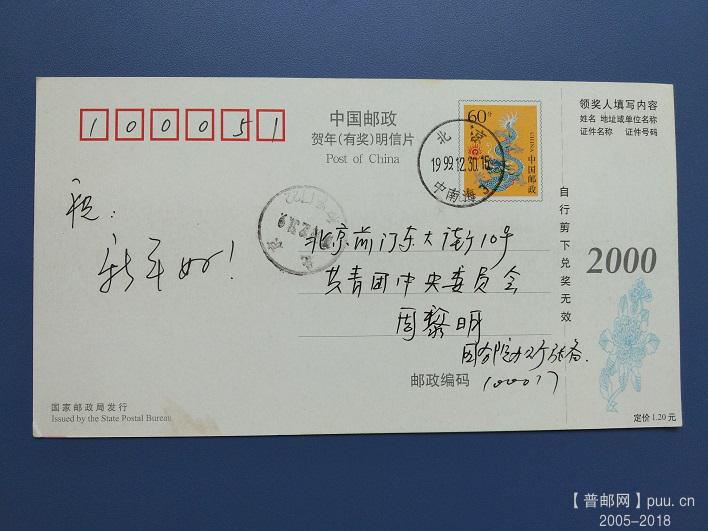 100051
中国邮政
贺年(有奖)明信片
Post of China
60分
CHINA
中国邮政
北京
1999.12.30.16
中南海
领奖人填写内容
姓名 地址或单位名称
证件名称 证件号码
祝:
新年好!
北京前门东大街10号
共青团中央委员会
周黎明
国务院办公厅
邮政编码 100017
自行剪下兑奖无效
2000
国家邮政局发行
Issued by the State Postal Bureau
定价 1.20 元
【普邮网】puu.cn
2005-2018